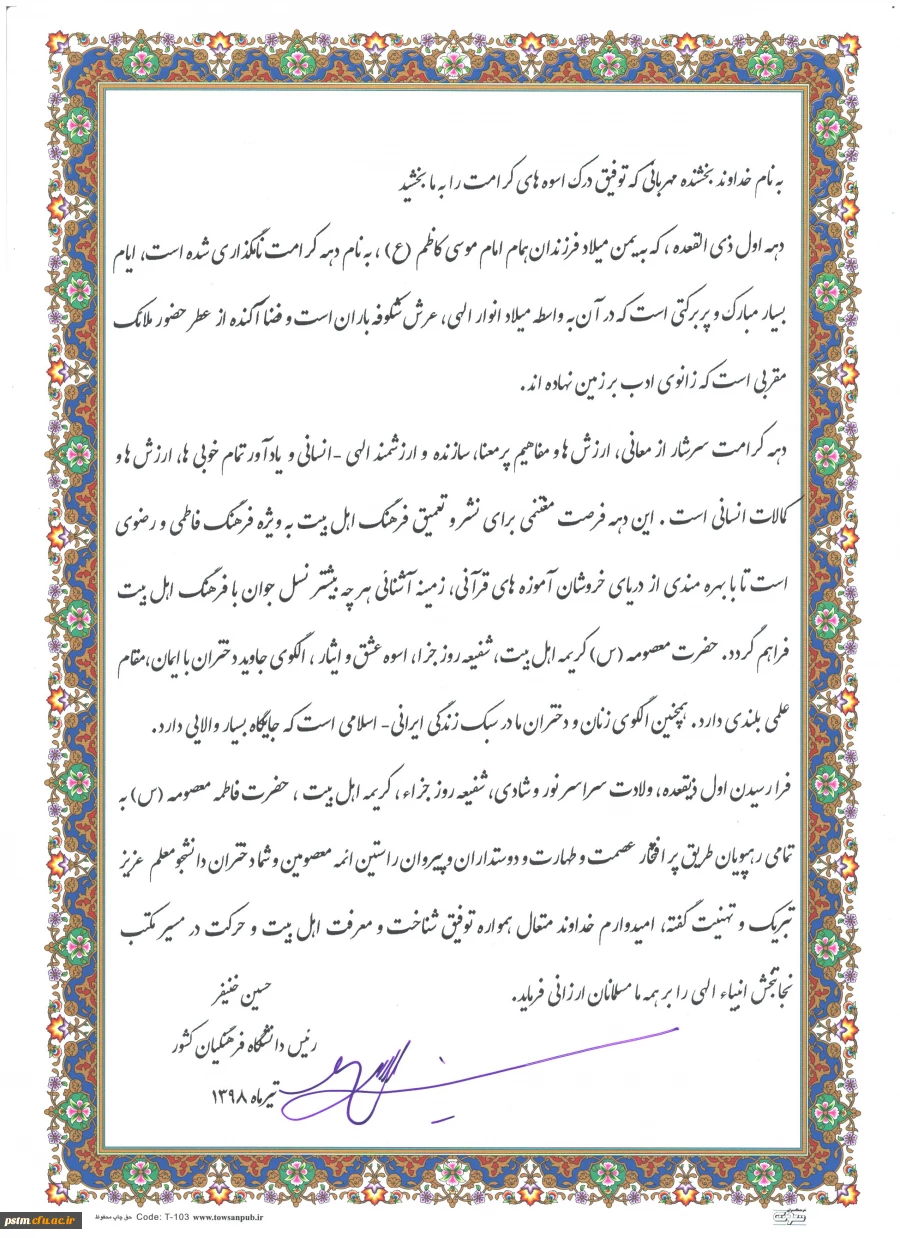 به نام خداوند بخشنده مهربانی که توفیق درک اسوه های کرامت را به ما بخشید
دهه اول ذی القعده ، که به یمن میلاد فرزندان همام امام موسی کاظم (ع) ، به نام دهه کرامت نامگذاری شده است، ایام
بسیار مبارک و پر برکتی است که در آن به واسطه میلاد انوار الهی، عرش شکوفه باران است و فضا آکنده از عطر حضور ملائک
مقربی است که زانوی ادب بر زمین نهاده اند .
دهه کرامت سرشار از معانی، ارزش ها و مفاهیم پرمعنا، سازنده و ارزشمند الهی -انسانی و یادآور تمام خوبی ها، ارزش ها و
کمالات انسانی است . این دهه فرصت مغتنمی برای نشر و تعمیق فرهنگ اهل بیت به ویژه فرهنگ فاطمی و رضوی
است تا با بهره مندی از دریای خروشان آموزه های قرآنی، زمینه آشنائی هر چه بیشتر نسل جوان با فرهنگ اهل بیت
فراهم گردد. حضرت معصومه (س) کریمه اهل بیت، شفیعه روز جزا، اسوه عشق و ایثار ، الگوی جاوید دختران با ایمان،مقام
علمی بلندی دارد. همچنین الگوی زنان و دختران ما در سبک زندگی ایرانی- اسلامی است که جایگاه بسیار والایی دارد.
فرا رسیدن اول ذیقعده، ولادت سراسر نور و شادی، شفیعه روز جزاء ، کریمه اهل بیت ، حضرت فاطمه معصومه (س) به
تمامی رهپویان طریق پر افتخار عصمت و طهارت و دوستداران و پیروان راستین ائمه معصومین و شما دختران دانشجو معلم عزیز
تبریک و تهنیت گفته، امیدوارم خداوند متعال همواره توفیق شناخت و معرفت اهل بیت و حرکت در مسیر مکتب
نجاتبخش انبیاء الهی را بر همه ما مسلمانان ارزانی فرماید.
حسین خنیفر
رئیس دانشگاه فرهنگیان کشور
تیرماه ۱۳۹۸
حق چاپ محفوظ Code: T-103 www.towsanpub.ir
pstm.cfu.ac.ir